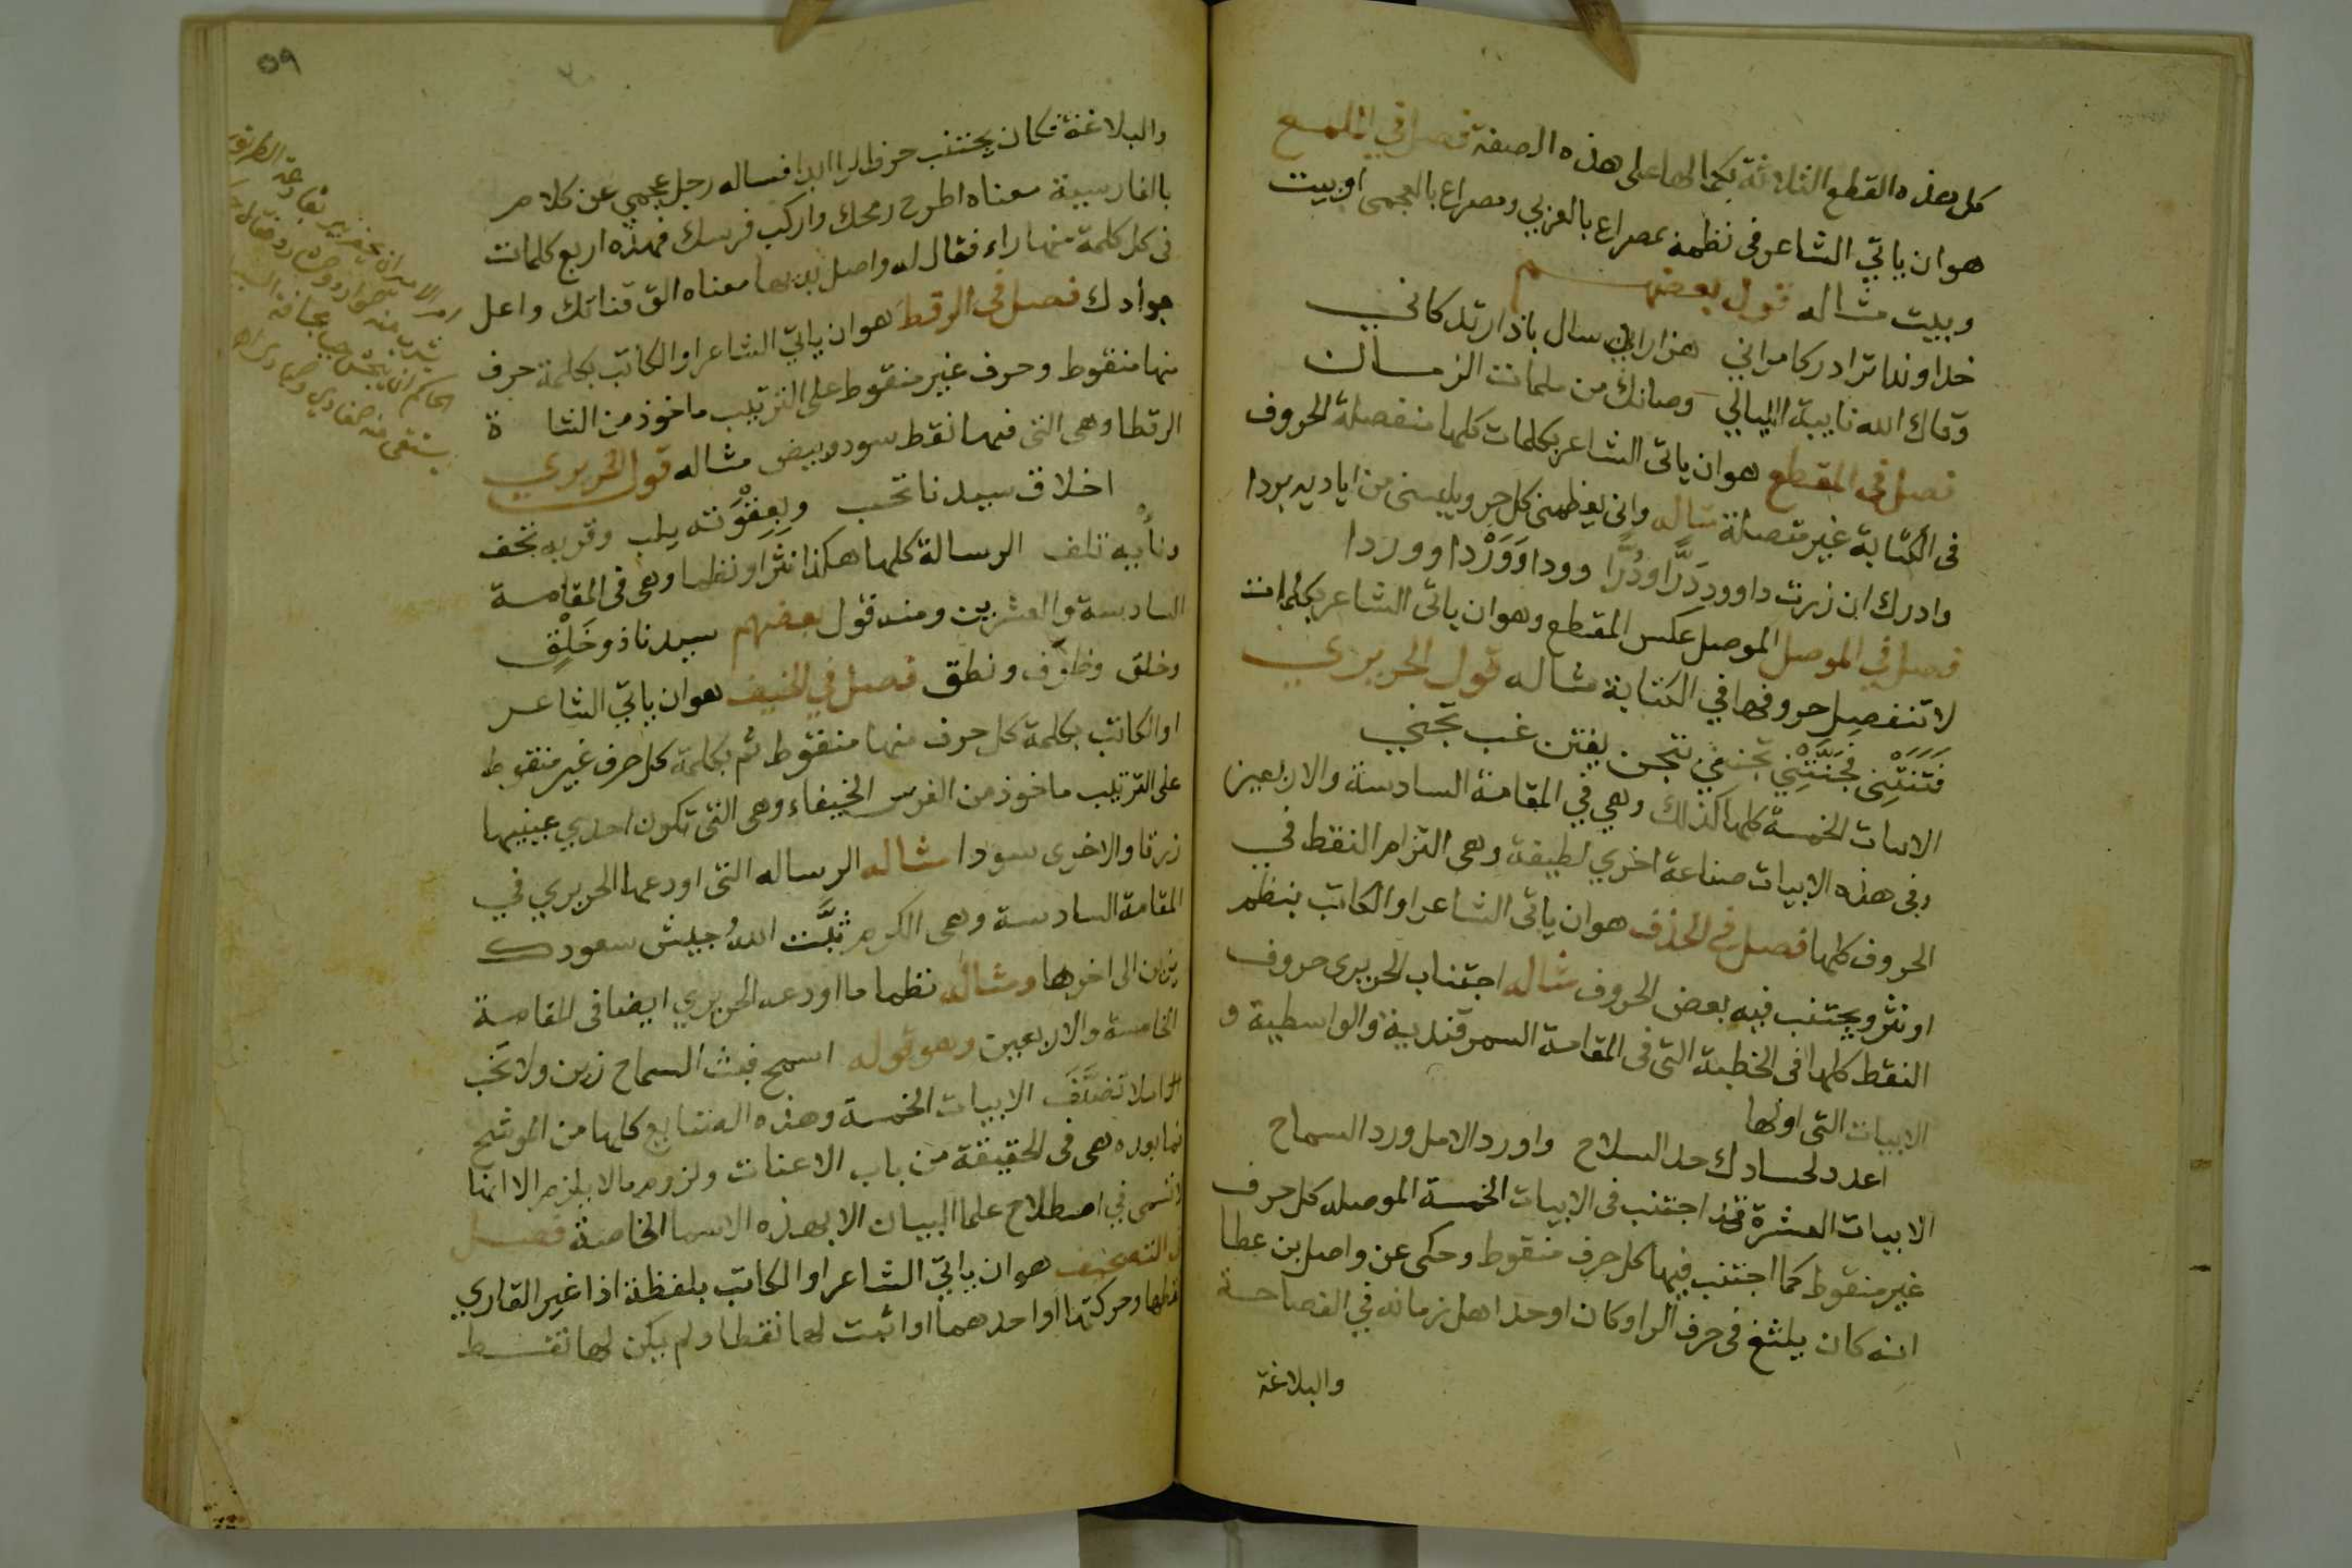 كل هذه القطع الثلاثة بكمالها على هذه الصفة فصل في الملمع
هو ان ياتي الشاعر في نظمه بمصراع بالعربي ومصراع بالعجمي او بيت
وبيت مثاله قول بعضهم
خداوندا ترا در كامراني هزاران سال باذا زندكاني
وقاك الله نايبة الليالي وصانك من ملمات الزمان
فصل في المقطع هو ان ياتي الشاعر بكلمات كلها منفصلة الحروف
في الكتابة غير متصلة مثاله واني يغطيني كل حر ويلبسني من اياديه بردا
وادرك ان زرت داوود دَرًّا ودُرًّا وودا وَوَرْدا ووردا
فصل في الموصل الموصل عكس المقطع وهو ان ياتي الشاعر بكلمات
لا تنفصل حروفها في الكتابة مثاله قول الحريري
فَتَنَتْنِي فَجَنَّنَتْنِي تجني بتجن يفتن غب تجني
الابيات الخمسة كلها كذلك وهي في المقامة السادسة والاربعين
وفي هذه الابيات صناعة اخري لطيفة وهي التزام النقط في
الحروف كلها فصل في الحذف هو ان ياتي الشاعر او الكاتب بنظم
او نثر ويجتنب فيه بعض الحروف مثاله اجتناب الحريري حروف
النقط كلها في الخطبة التي في المقامة السمرقندية والواسطية و
الابيات التي اولها
اعدد لحسادك حد السلاح واورد الامل ورد السماح
الابيات العشرة فقد اجتنب في الابيات الخمسة الموصله كل حرف
غير منقوط كما اجتنب فيها كل حرف منقوط وحكى عن واصل بن عطا
انه كان يلثغ في حرف الرا وكان اوحد اهل زمانه في الفصاحة
والبلاغة
٥٩
والبلاغة فكان يجتنب حرف الرا ابدا فساله رجل عجمي عن كلام
بالفارسية معناه اطرح رمحك واركب فرسك فهذه اربع كلمات
في كل كلمة منها راء فقال له واصل بديها معناه الق قناتك واعل
جوادك فصل في الرقط هو ان ياتي الشاعر او الكاتب بكلمة حرف
منها منقوط وحرف غير منقوط على الترتيب ماخوذ من الشاة
الرقطا وهي التي فيها نقط سود وبيض مثاله قول الحريري
اخلاق سيدنا تحب وبِعِقْوَته يلب وقربه تحف
ونأيه تلف الرسالة كلها هكذا نثرا ونظما وهي في المقامة
السادسة والعشرين ومنه قول بعضهم سيدنا ذو خَلْقٍ
وخلق وظرف ونطق فصل في الخيف هو ان ياتي الشاعر
او الكاتب بكلمة كل حرف منها منقوط ثم بكلمة كل حرف غير منقوط
على الترتيب ماخوذ من الفرس الخيفاء وهي التي تكون احدي عينيها
زرقا والاخري سودا مثاله الرساله التي اودعها الحريري في
المقامة السادسة وهي الكرم ثبَّت اللهُ جيش سعودك
يزين الى اخرها ومثاله نظما ما اودعه الحريري ايضا في المقامة
الخامسة والاربعين وهو قوله اسمح فبث السماح زين ولا تَخِب
املا تضيَّفَ الابيات الخمسة وهذه الصنايع كلها من الموشح
فما بعده هي في الحقيقة من باب الاعنات ولزوم ما لا يلزم الا انها
لا تسمى في اصطلاح علما البيان الا بهذه الاسما الخاصة فصل
في التصحيف هو ان ياتي الشاعر او الكاتب بلفظة اذا غير القاري
نقطها وحركتها او احدهما او اثبت لها نقطا ولم يكن لها نقط